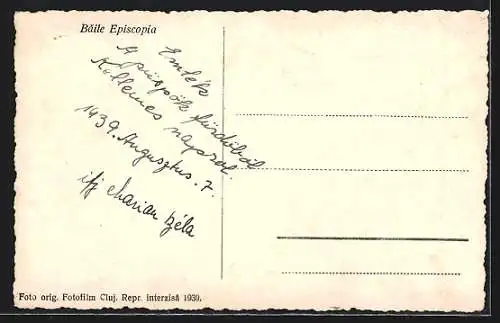 Băile Episcopia
Emlék
A püspök fürdőből
Kellemes napról.
1939. Augusztus. 7.
ifj Marian Béla
Foto orig. Fotofilm Cluj. Repr. interzisă 1939.